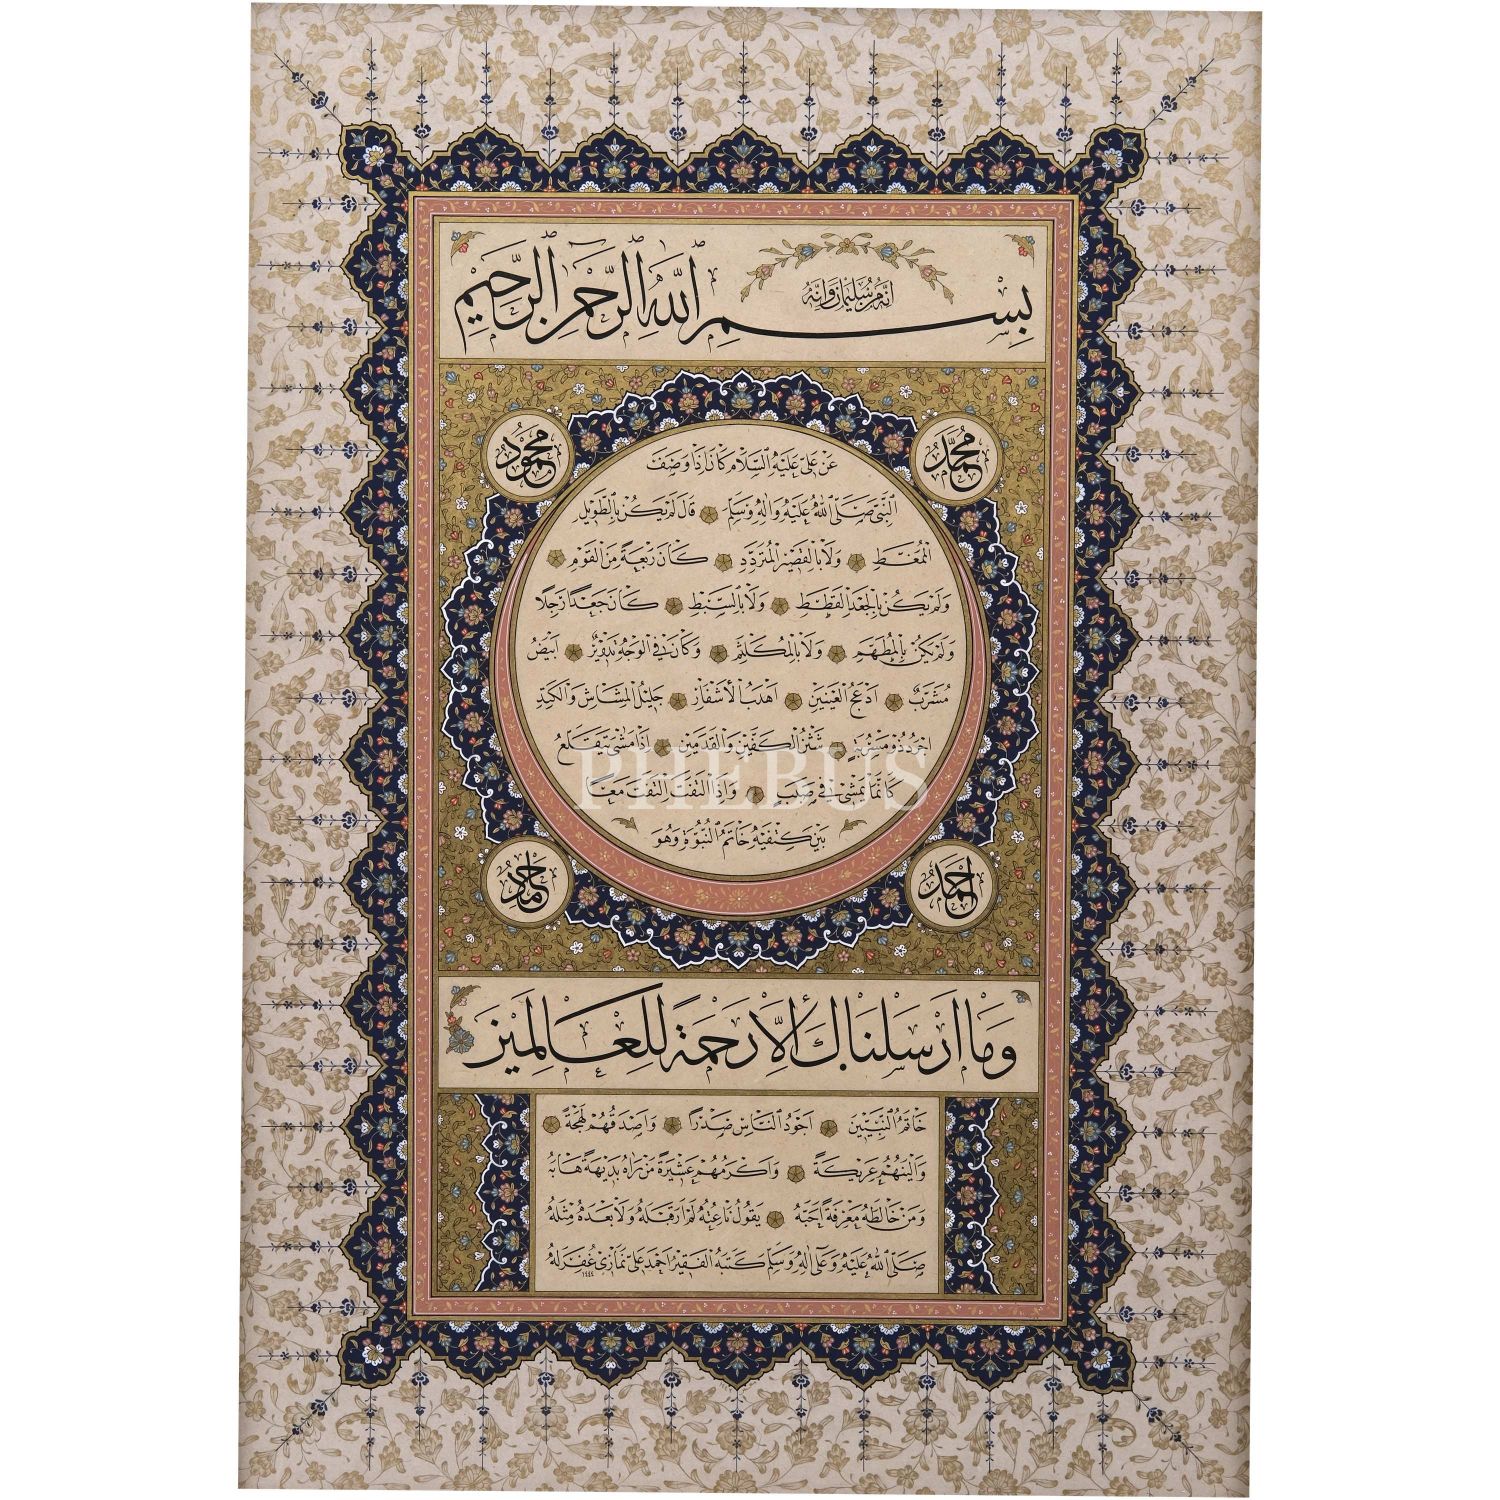 انه من سليمان وانه
بسم الله الرحمن الرحيم
محمد
محمود
عن علي عليه السلام كان اذا وصف
النبي صلى الله عليه واله وسلم قال لم يكن بالطويل
الممغط ولا بالقصير المتردد كان ربعة من القوم
ولم يكن بالجعد القطط ولا بالسبط كان جعدا رجلا
ولم يكن بالمطهم ولا بالمكلثم وكان في الوجه تدوير ابيض
مشرب ادعج العينين اهدب الأشفار جليل المشاش والكتد
اجرد ذو مسربة شثن الكفين والقدمين اذا مشى يتقلع
كانما يمشي في صبب واذا التفت التفت معا
بين كتفيه خاتم النبوة وهو
PHEBUS
احمد
حامد
وما ارسلناك الا رحمة للعالمين
خاتم النبيين اجود الناس صدرا واصدقهم لهجة
والينهم عريكة واكرمهم عشيرة من راه بديهة هابه
ومن خالطه معرفة احبه يقول ناعته لم ار قبله ولا بعده مثله
صلى الله عليه وعلى اله وسلم كتبه الفقير احمد علي نمازي غفر له
١٤٤٤